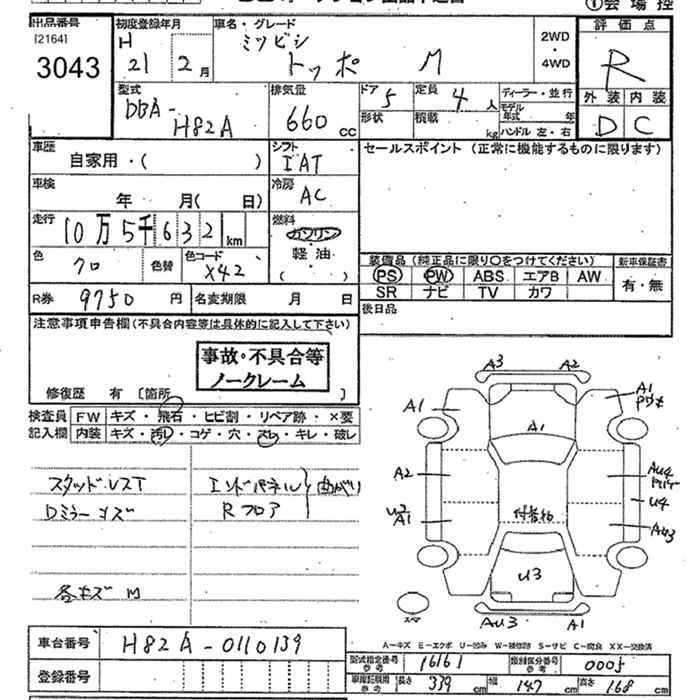 ①会場控
出品番号 初度登録年月 車名・グレード 2WD 評価点
[2164] H ミツビシ ・
3043 21 2月 トッポ M 4WD R
型式 排気量 ドア 定員 ディーラー・並行 外装 内装
DBA- 5 4人 モデル年式 年 D C
H82A 660cc 形状 積載 kg ハンドル 左・右
車歴 シフト セールスポイント (正常に機能するものに限ります)
自家用・( ) IAT
車検 冷房
年 月( 日) AC
走行 燃料
10万5千632km ガソリン
色 色コード ・
クロ 色替 X42 軽油 装備品 (純正品に限り〇をつけてください) 新車保証書
( ) PS PW ABS エアB AW 有・無
R券 9750円 名変期限 月 日 SR ナビ TV カワ
注意事項申告欄(不具合内容等は具体的に記入して下さい) 後日品
事故・不具合等
ノークレーム
修復歴 有 〔箇所 〕
検査員 FW キズ・飛石・ヒビ割・リペア跡・×要
記入欄 内装 キズ・汚レ・コゲ・穴・スレ・キレ・破レ
A3 A2
A1 A1
A1
A2 AU4
U4
A1 AU3
U3
AU3 A1
スタッドレスT エンドパネル 曲がり
Dミラーキズ Rフロア
各キズ M
車台番号 H82A-0110139
A-キズ E-エクボ U-凹み W-補修跡 S-サビ C-腐食 XX-交換済
登録番号 型式指定番号 参考 16161 類別区分番号 参考 0005
長さ 339cm 幅 147cm 高さ 168cm